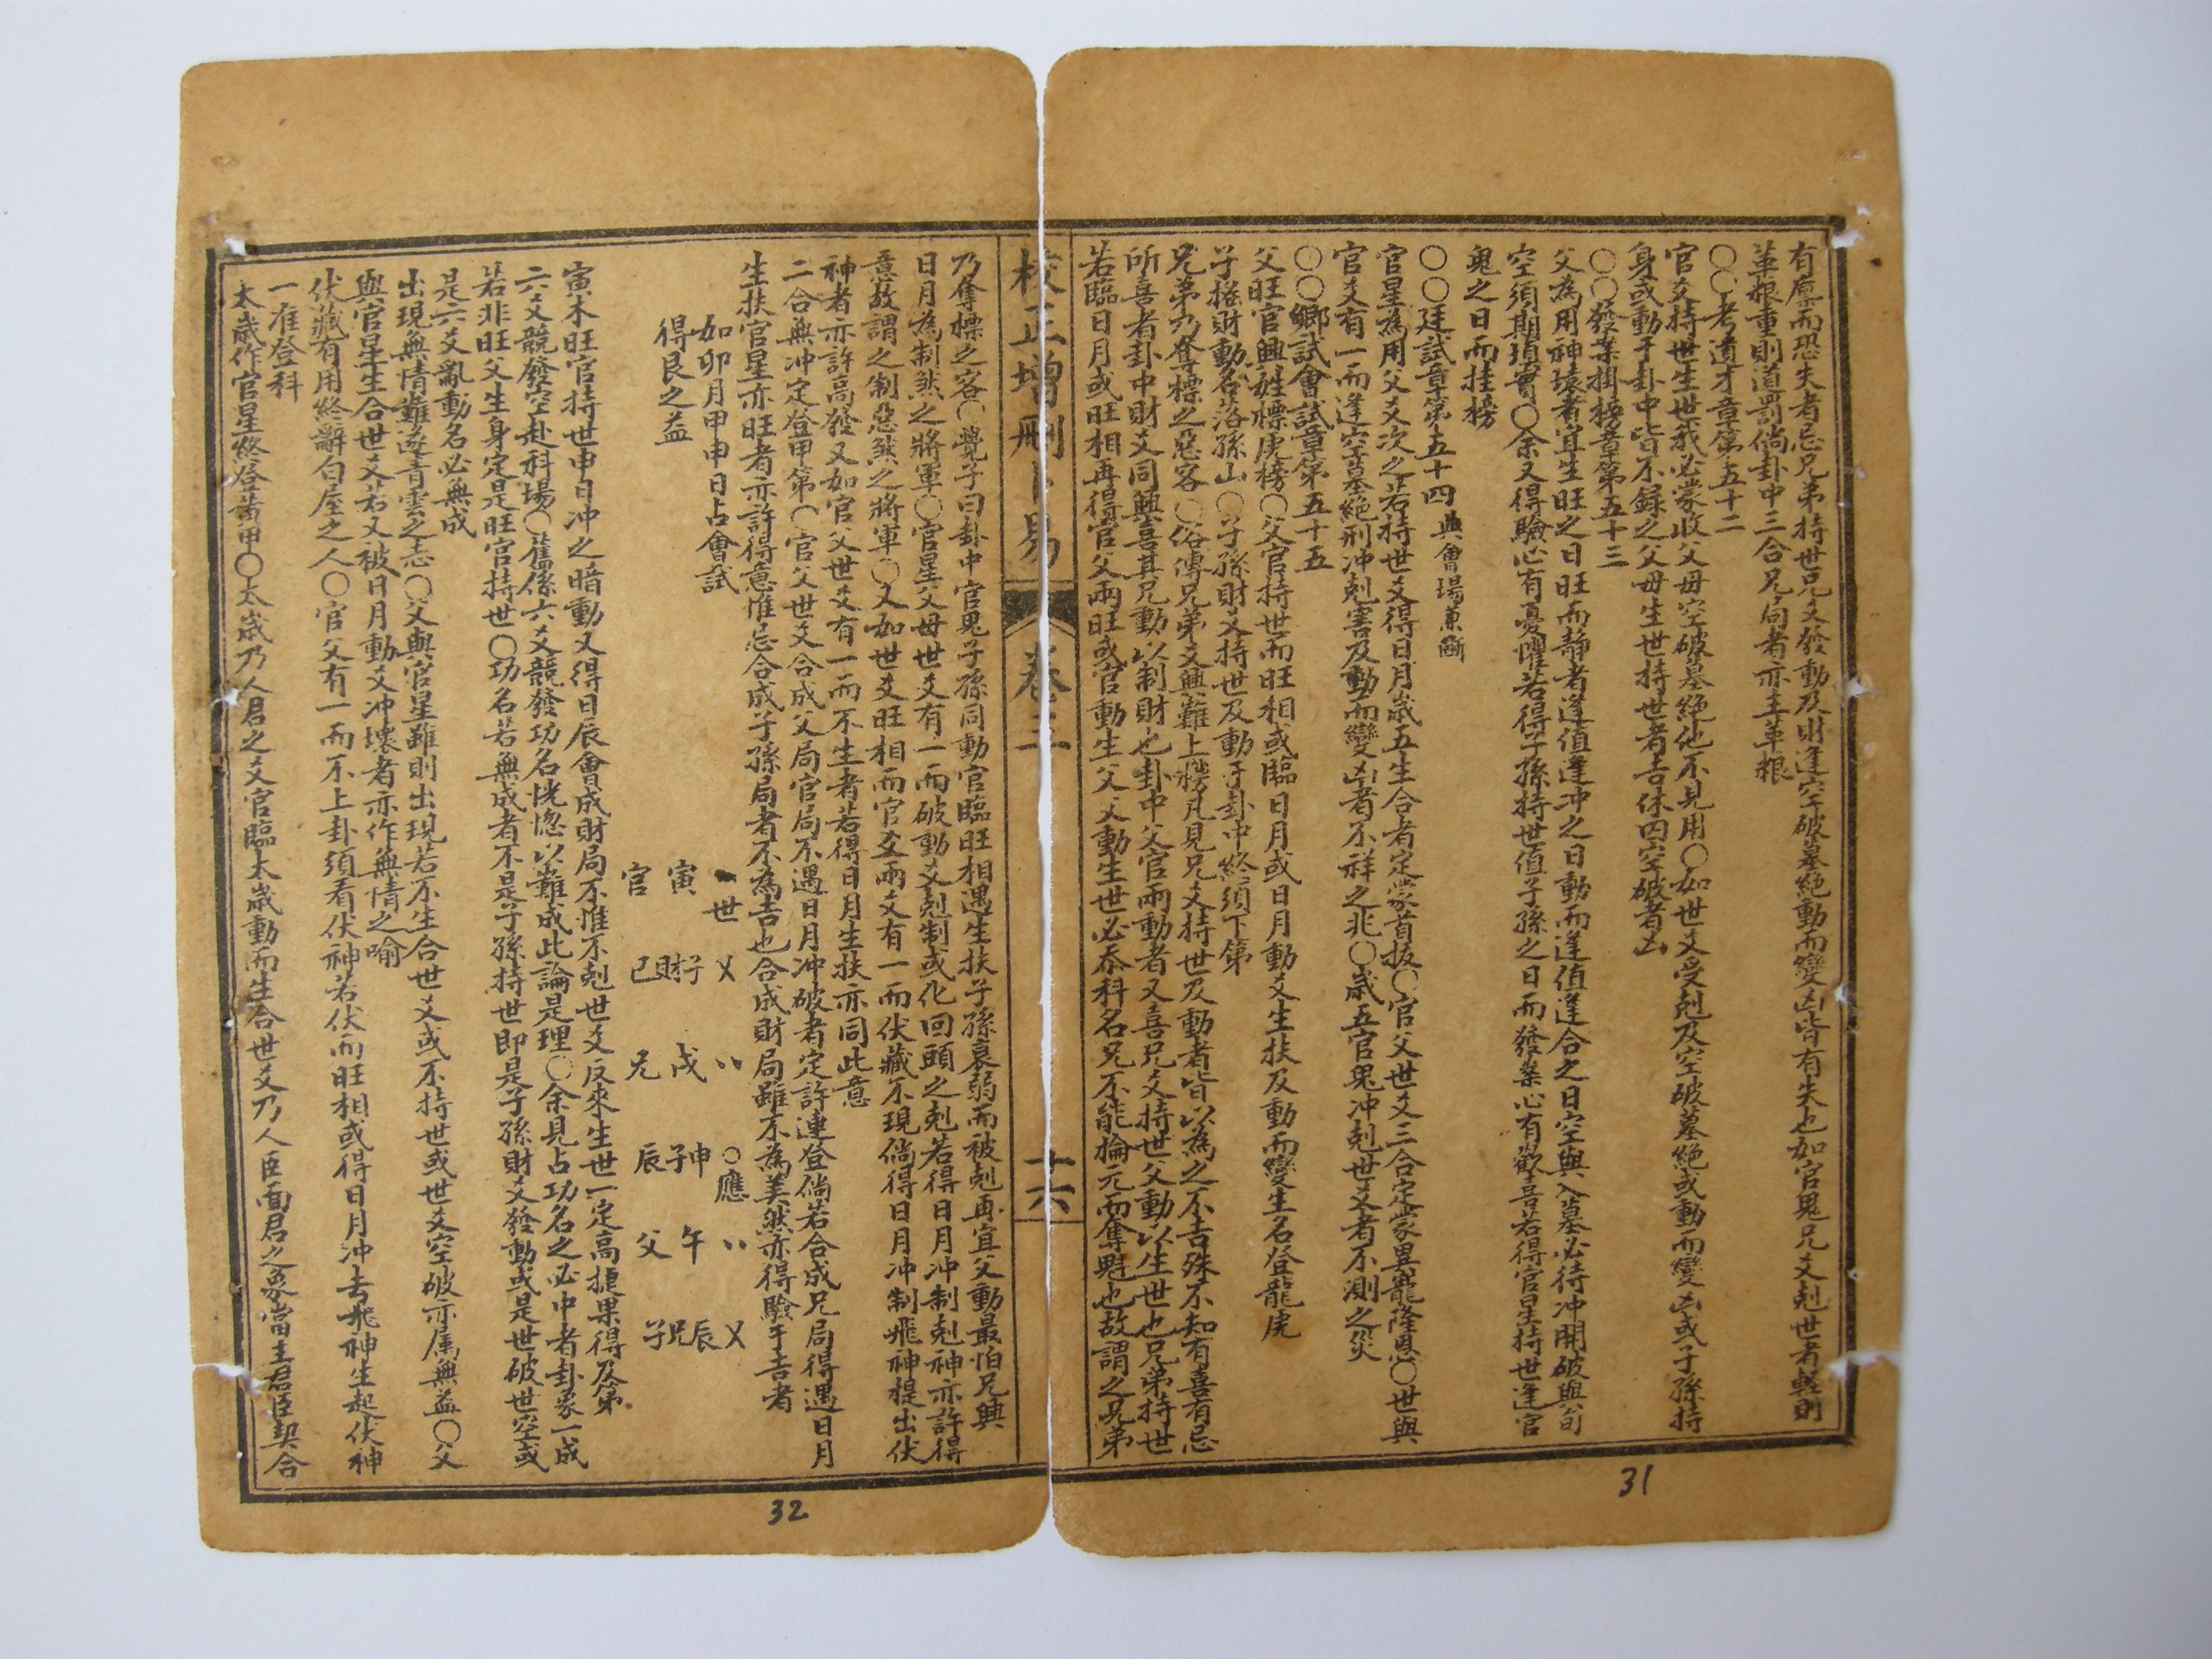 有廪而恐失者忌兄弟持世兄爻發動及財逢空破墓絕動而變凶皆有失也如官鬼兄爻剋世者輕則
革粮重則道罰倘卦中三合兄局者亦主革粮
〇〇考遺才章第五十二
官爻持世生世我必蒙收父母空破墓絕他不見用〇如世爻受剋及空破墓絕或動而變凶或子孫持
身或動于卦中皆不録之父母生世持世者吉休囚空破者凶
〇〇發案掛榜章第五十三
父為用神壞者宜生旺之日旺而靜者逢值逢冲之日動而逢值逢合之日空與入墓必待冲開破與旬
空須期填實〇余又得驗心有憂懼若得子孫持世值子孫之日而發案心有歡喜若得官星持世逢官
鬼之日而挂榜
〇〇廷試章第五十四 與會場兼斷
官星為用父爻次之若持世爻得日月歲五生合者定蒙首拔〇官父世爻三合定蒙異寵隆恩〇世與
官爻有一而逢空墓絕刑冲剋害及動而變凶者不祥之兆〇歲五官鬼冲剋世爻者不測之災
〇〇鄉試會試章第五十五
父旺官興姓標虎榜〇父官持世而旺相或臨日月或日月動爻生扶及動而變生名登龍虎
子搖財動名落孫山〇子孫財爻持世及動于卦中終須下第
兄弟乃奪標之惡客〇俗傳兄弟爻興難上榜凡見兄爻持世及動者皆以為之不吉殊不知有喜有忌
所喜者卦中財爻同興喜其兄動以制財也卦中父官兩動者又喜兄爻持世父動以生世也兄弟持世
若臨日月或旺相再得官父兩旺或官動生父父動生世必忝科名兄不能掄元而奪魁也故謂之兄弟
校正增刪卜易 卷三 十六
乃奪標之客〇覺子曰卦中官鬼子孫同動官臨旺相遇生扶子孫衰弱而被剋再宜父動最怕兄興
日月為制煞之將軍〇官星父母世爻有一而破動爻剋制或化回頭之剋若得日月冲制剋神亦許得
意故謂之制惡煞之將軍〇又如世爻旺相而官爻兩爻有一而伏藏不現倘得日月冲制飛神提出伏
神者亦許高發又如官父世爻有一而不生者若得日月生扶亦同此意
二合無冲定登甲第〇官父世爻合成父局官局不遇日月冲破者定許連登倘若合成兄局得遇日月
生扶官星亦旺者亦許得意惟忌合成子孫局者不為吉也合成財局雖不為美然亦得驗于吉者
如卯月甲申日占會試
得艮之益
世
寅 官
子財 巳
戌 兄
應
申子 辰
午 父
辰兄 子
寅木旺官持世申日冲之暗動又得日辰會成財局不惟不剋世爻反來生世一定高捷果得及第
六爻競發空赴科場〇舊係六爻競發功名恍惚以難成此論是理〇余見占功名之必中者卦象一成
若非旺父生身定是旺官持世〇功名若無成者不是子孫持世即是子孫財爻發動或是世破世空或
是六爻亂動名必無成
出現無情難遂青雲之志〇父與官星雖則出現若不生合世爻或不持世或世爻空破亦属無益〇父
與官星生合世爻若又被日月動爻冲壞者亦作無情之喻
伏藏有用終辭白屋之人〇官父有一而不上卦須看伏神若伏而旺相或得日月冲去飛神生起伏神
一准登科
太歲作官星終登黃甲〇太歲乃人君之爻官臨太歲動而生合世爻乃人臣面君之象當主君臣契合
31
32